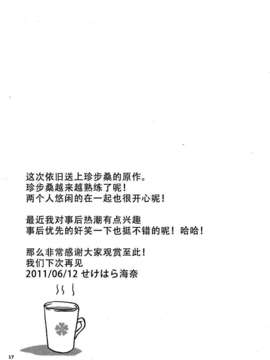 这次依旧送上珍步桑的原作。
珍步桑越来越熟练了呢！
两个人悠闲的在一起也很开心呢！
最近我对事后热潮有点兴趣
事后优先的好笑一下也挺不错的呢！哈哈！
那么非常感谢大家观赏至此！
我们下次再见
2011/06/12 せけはら海奈
17